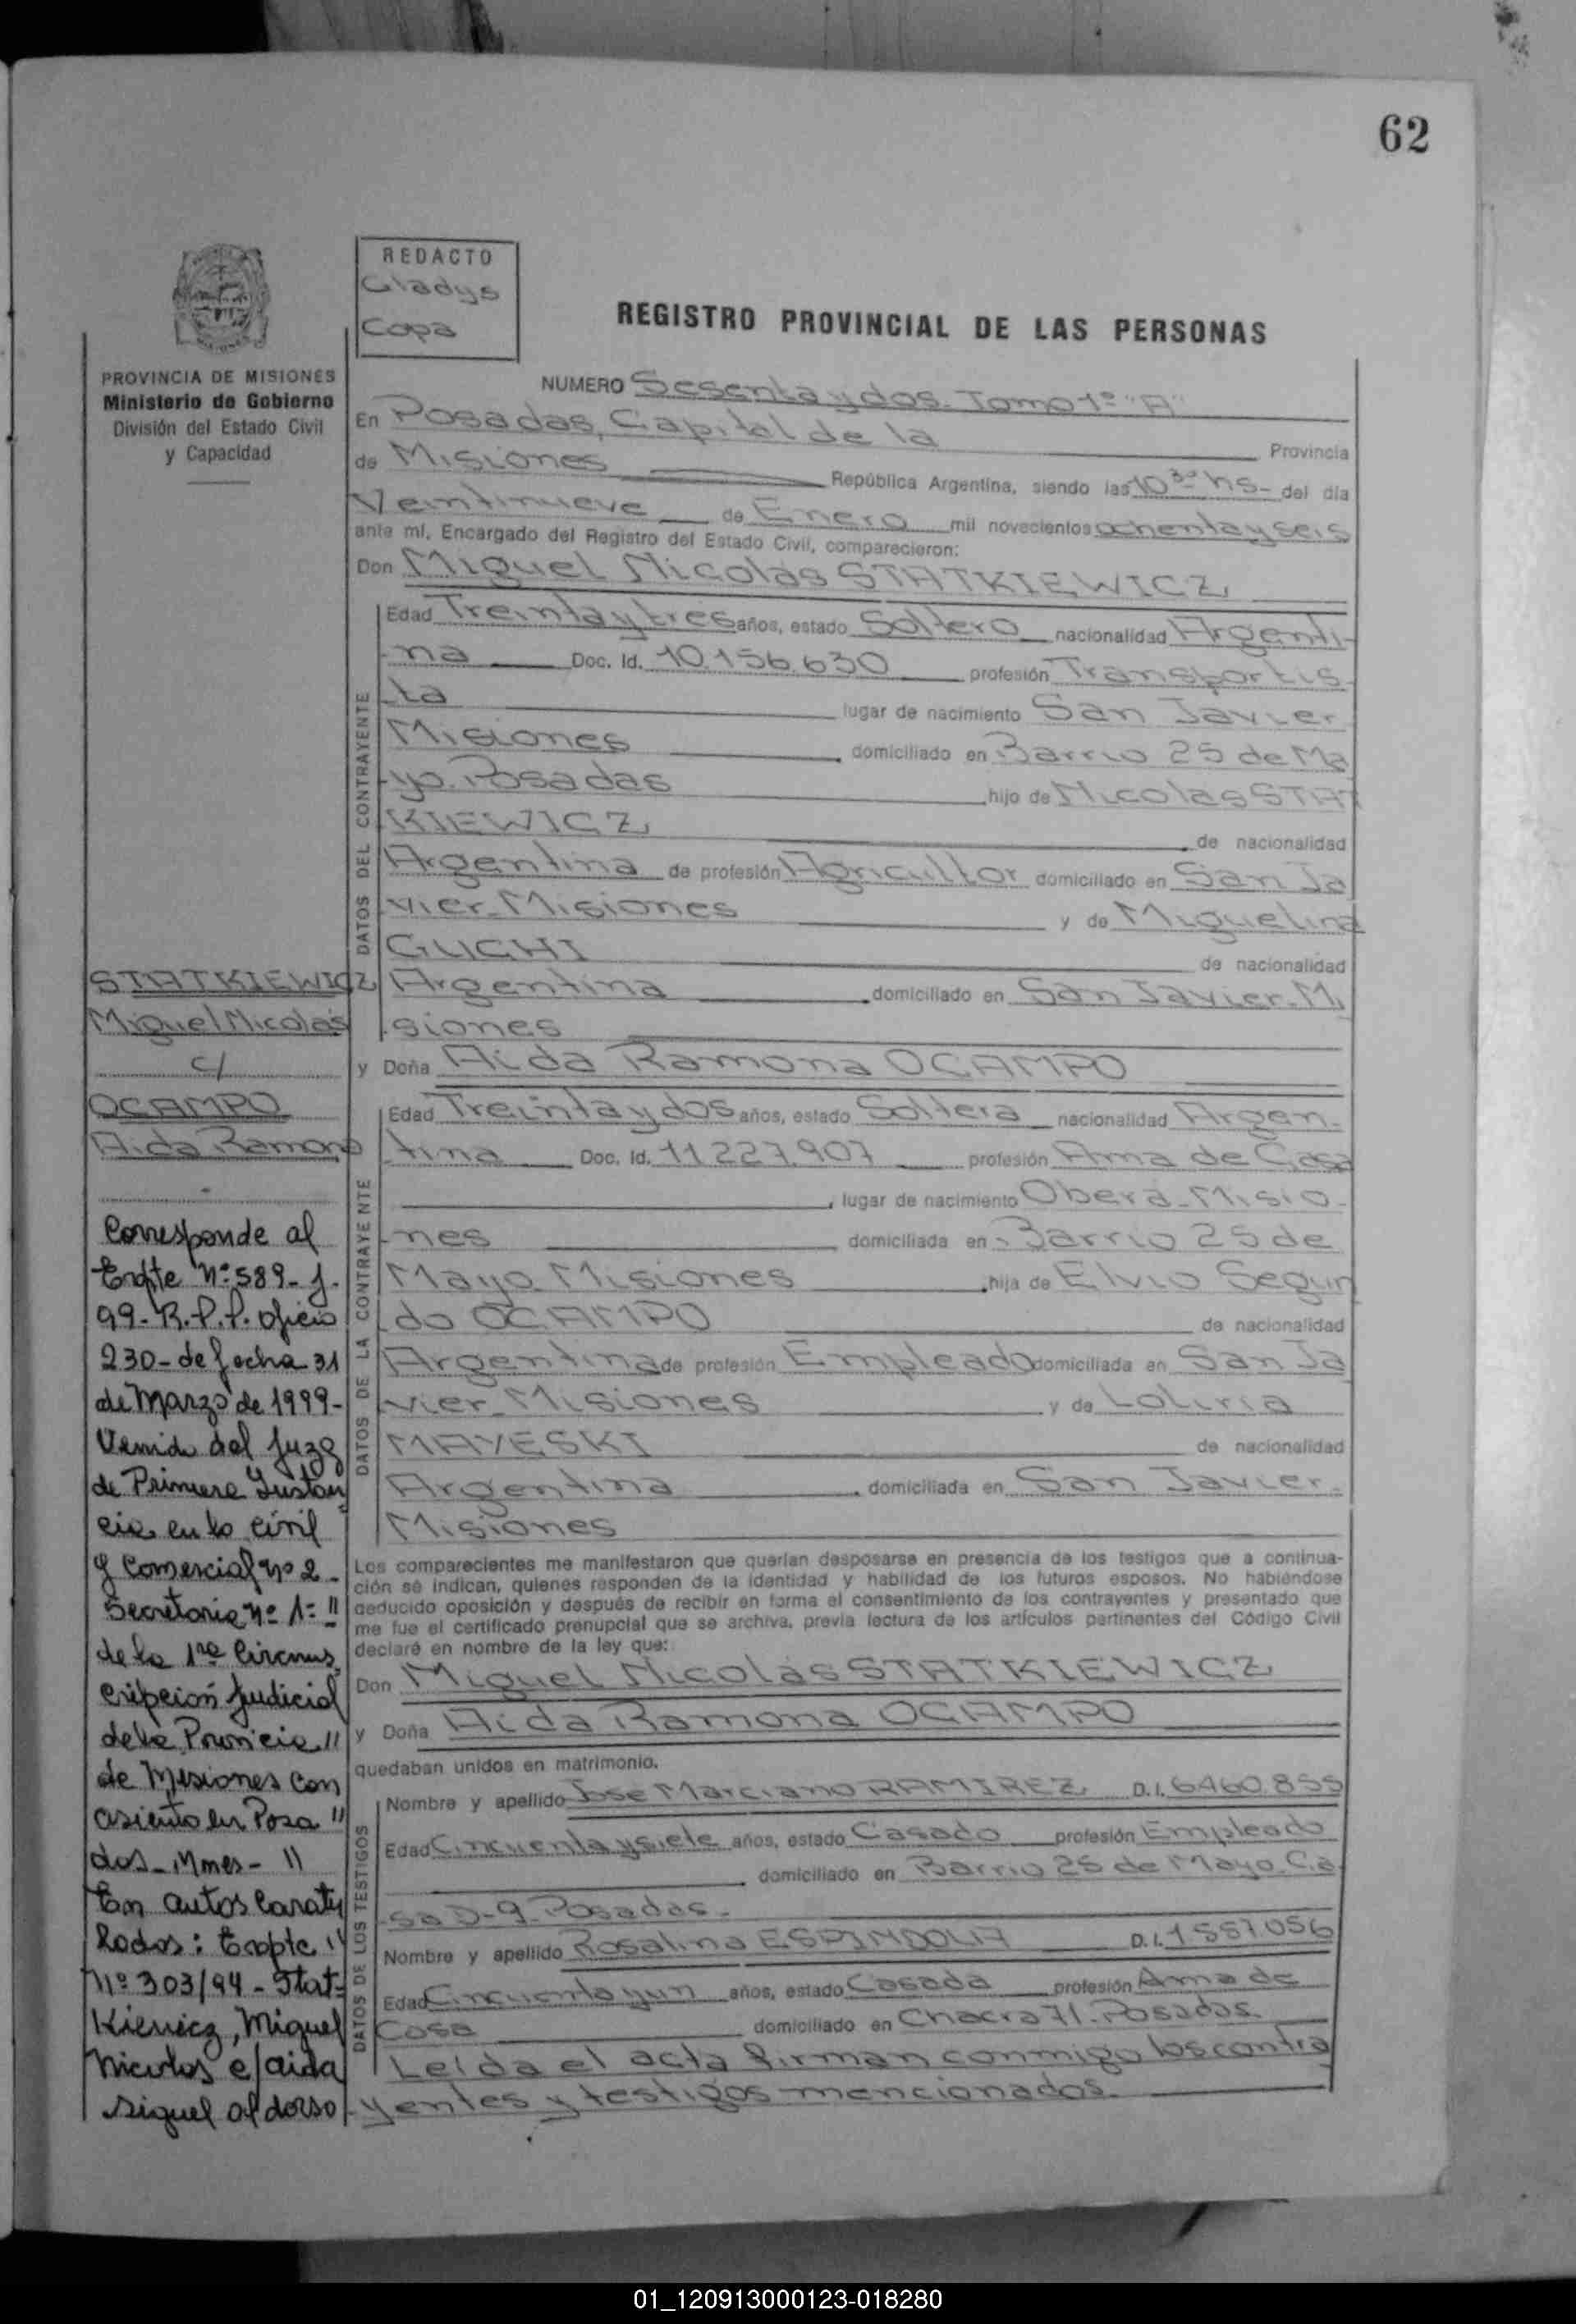 62
REDACTO
Gladys
Copa
REGISTRO PROVINCIAL DE LAS PERSONAS
PROVINCIA DE MISIONES
Ministerio de Gobierno
División del Estado Civil
y Capacidad
NUMERO Sesenta y dos. Tomo 1º "A"
En Posadas, Capital de la Provincia
de Misiones República Argentina, siendo las 10 30 hs- del día
Veintinueve de Enero mil novecientos ochenta y seis
ante mí, Encargado del Registro del Estado Civil, comparecieron:
Don Miguel Nicolás STATKIEWICZ
DATOS DEL CONTRAYENTE
Edad Treinta y tres años, estado Soltero nacionalidad Argenti-
na Doc. Id. 10.156.630 profesión Transportis
ta lugar de nacimiento San Javier
Misiones domiciliado en Barrio 25 de Ma
yo. Posadas hijo de Nicolás STAT
KIEWICZ, de nacionalidad
Argentina de profesión Agricultor domiciliado en San Ja
vier-Misiones y de Miguelina
GUCHI de nacionalidad
Argentina domiciliado en San Javier-Mi
siones
y Doña Aida Ramona OCAMPO
DATOS DE LA CONTRAYENTE
Edad Treinta y dos años, estado Soltera nacionalidad Argen-
tina Doc. Id. 11.227.907 profesión Ama de Casa
lugar de nacimiento Oberá-Misio-
nes domiciliada en Barrio 25 de
Mayo Misiones hija de Elvio Segun
do OCAMPO de nacionalidad
Argentina de profesión Empleado domiciliada en San Ja
vier-Misiones y de Loliria
MAYESKI de nacionalidad
Argentina domiciliada en San Javier-
Misiones
Los comparecientes me manifestaron que querían desposarse en presencia de los testigos que a continua-
ción se indican, quienes responden de la identidad y habilidad de los futuros esposos. No habiéndose
deducido oposición y después de recibir en forma el consentimiento de los contrayentes y presentado que
me fue el certificado prenupcial que se archiva, previa lectura de los artículos pertinentes del Código Civil
declaré en nombre de la ley que:
Don Miguel Nicolás STATKIEWICZ
y Doña Aida Ramona OCAMPO
quedaban unidos en matrimonio.
DATOS DE LOS TESTIGOS
Nombre y apellido Jose Marciano RAMIREZ D.I. 6460.855
Edad Cincuenta y siete años, estado Casado profesión Empleado
domiciliado en Barrio 25 de Mayo. Ca
sa D-9-Posadas-
Nombre y apellido Rosalina ESPINDOLA D.I. 1557056
Edad Cincuenta y un años, estado Casada profesión Ama de
Casa domiciliado en Chacra 71-Posadas.
Leída el acta firman conmigo los contra
yentes y testigos mencionados.
STATKIEWICZ
Miguel Nicolás
c/
OCAMPO
Aida Ramona
Corresponde al
Expte Nº 589-J-
99-R.P.P. oficio
230-de fecha 31
de Marzo de 1999-
Venido del Juzg
de Primera Instan
cia en lo civil
y Comercial nº 2-
Secretaria Nº 1- "
de la 1ra Circuns
cripción Judicial
de la Provincia "
de Misiones Con
asiento en Posa "
das-Mnes- "
En autos Caratu
lados: Expte "
Nº 303/94-Stat-
Kiewicz, Miguel
Nicolos c/ aida
siguel al dorso
01_120913000123-018280